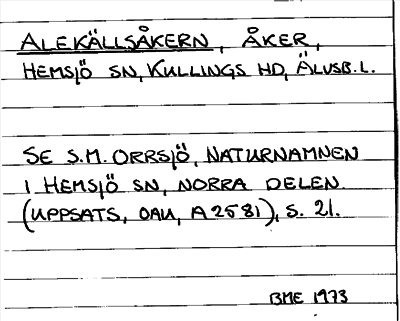 ALEKÄLLSÅKERN, ÅKER,
HEMSJÖ SN, KULLINGS HD, ÄLVSB. L.
SE S.M. ORRSJÖ, NATURNAMNEN
I HEMSJÖ SN, NORRA DELEN.
(UPPSATS, OAU, A2581), S. 21.
BME 1973